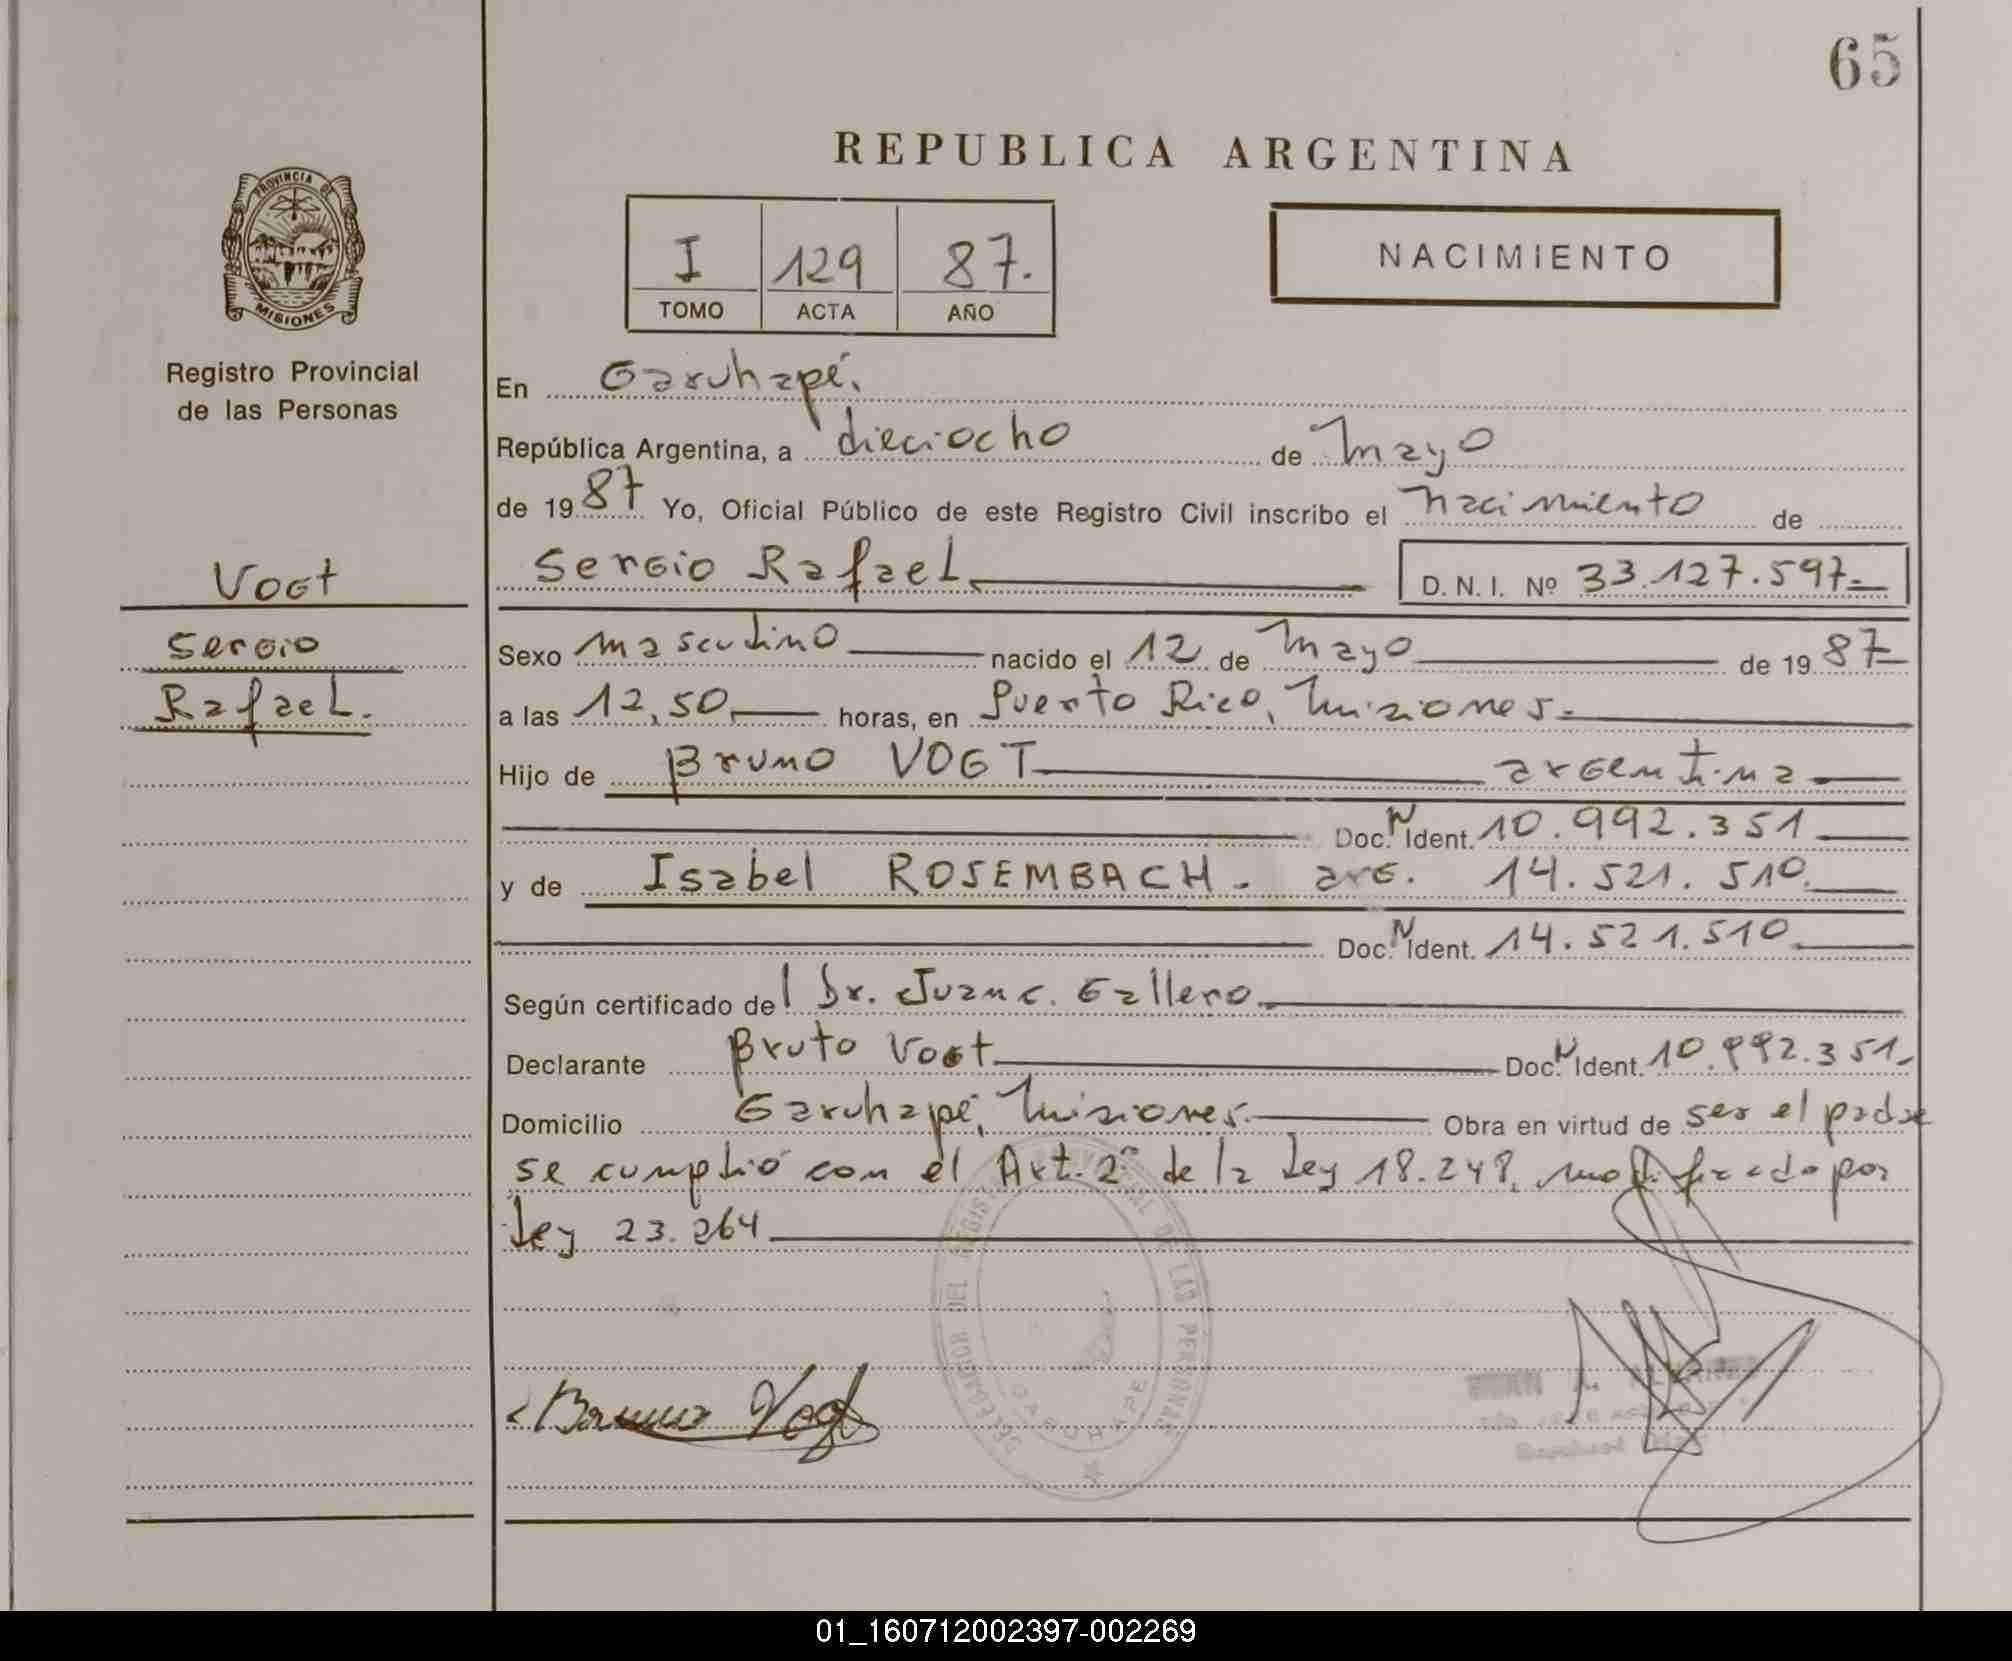 65
REPUBLICA ARGENTINA
PROVINCIA DE
MISIONES
Registro Provincial
de las Personas
I 129 87.
TOMO ACTA AÑO
NACIMIENTO
En Garuhapé.
República Argentina, a dieciocho de Mayo
de 19 87 Yo, Oficial Público de este Registro Civil inscribo el Nacimiento de
Sergio Rafael D. N. I. Nº 33.127.597.-
Vogt
Sergio
Rafael.
Sexo masculino nacido el 12 de Mayo de 19 87
a las 12,50 horas, en Puerto Rico, Misiones.
Hijo de Bruno VOGT argentina
Doc. N Ident. 10.992.351
y de Isabel ROSEMBACH. arg. 14.521.510.
Doc. N Ident. 14.521.510
Según certificado del Dr. Juan C. Gallero.
Declarante Bruto Vogt Doc. N Ident. 10.992.351.
Domicilio Garuhapé, Misiones. Obra en virtud de ser el padre
se cumplió con el Art. 2º de la Ley 18.248, modificado por
Ley 23.264
DEL REGISTRO PROVINCIAL DE LAS PERSONAS
GARUHAPE
Bruno Vogt
01_160712002397-002269